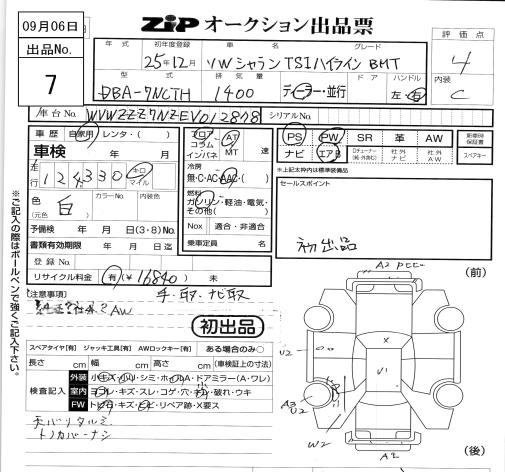 09月06日
出品No.
7
ZIP オークション出品票
評価点
4
内装
C
年式 初年度登録 車名 グレード
25年12月 VWシャラン TSIハイライン BMT
型式 排気量 ドア ハンドル
DBA-7NCTH 1400 ディーラー・並行 左・右
車台No. WVWZZZ7NZEV012878 シリアルNo.
車歴 自家用・レンタ・( )
車検 年 月
走行 124330 キロ マイル
色 (元色) 白 カラーNo. 内装色
予備検 年 月 日(3・8)No.
書類有効期限 年 月 日迄
登録No.
リサイクル料金 有(¥16840) 未
フロア コラム インパネ AT MT 速
冷房
無・C・AC・AAC・( )
燃料
ガソリン・軽油・電気・その他( )
Nox 適合・非適合
乗車定員 名
PS PW SR 革 AW
ナビ エアB 社外ナビ 社外AW
新車時保証書
スペアキー
※上記太枠内は標準装備品
セールスポイント
初出品
手・取・ナビ取
[注意事項]
AW
初出品
スペアタイヤ[有] ジャッキ工具[有] AWロックキー[有] ある場合のみ○
長さ cm 幅 cm 高さ cm (車検証上の寸法)
検査記入
外装 小キズ・小凹・シミ・ホールA・ドアミラー(A・ワレ)
室内 ヨゴレ・キズ・スレ・コゲ・穴・破れ・ウキ
FW トビ石・キズ・ヒビ・リペア跡・X要ス
天バリタルミ
トノカバーナシ
※ご記入の際はボールペンで強くご記入下さい。
(前)
A2
U2
X
U1
A3
U2
W2
A2
(後)